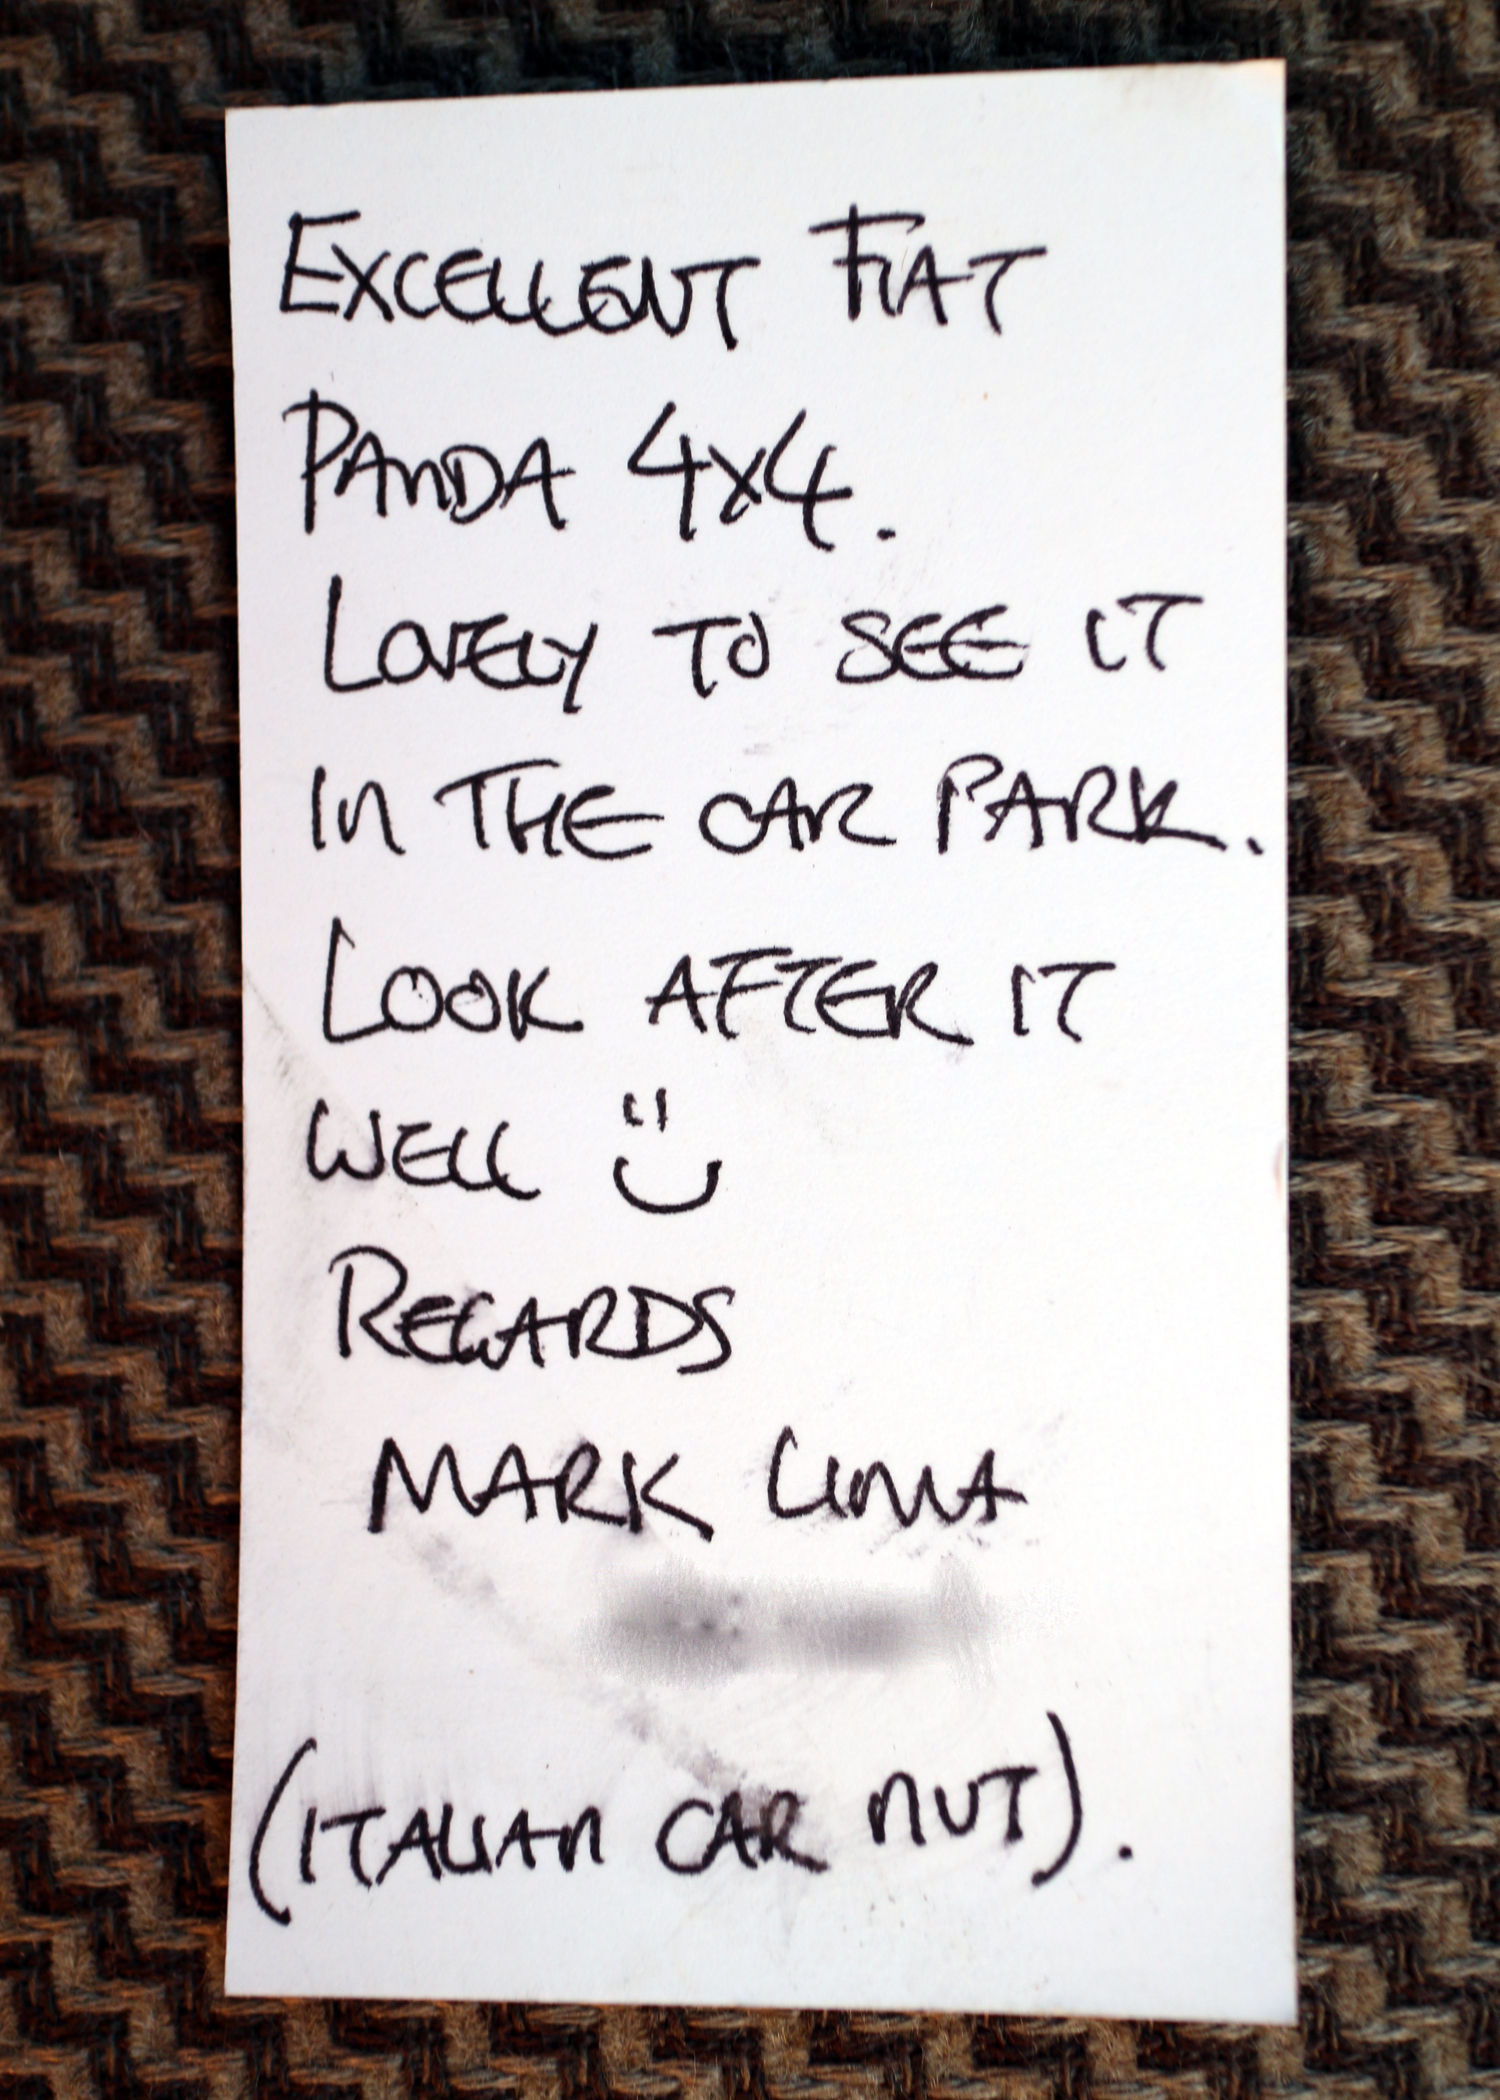 EXCELLENT FIAT
PANDA 4x4.
LOVELY TO SEE IT
IN THE CAR PARK.
LOOK AFTER IT
WELL
REGARDS
MARK
(ITALIAN CAR NUT).